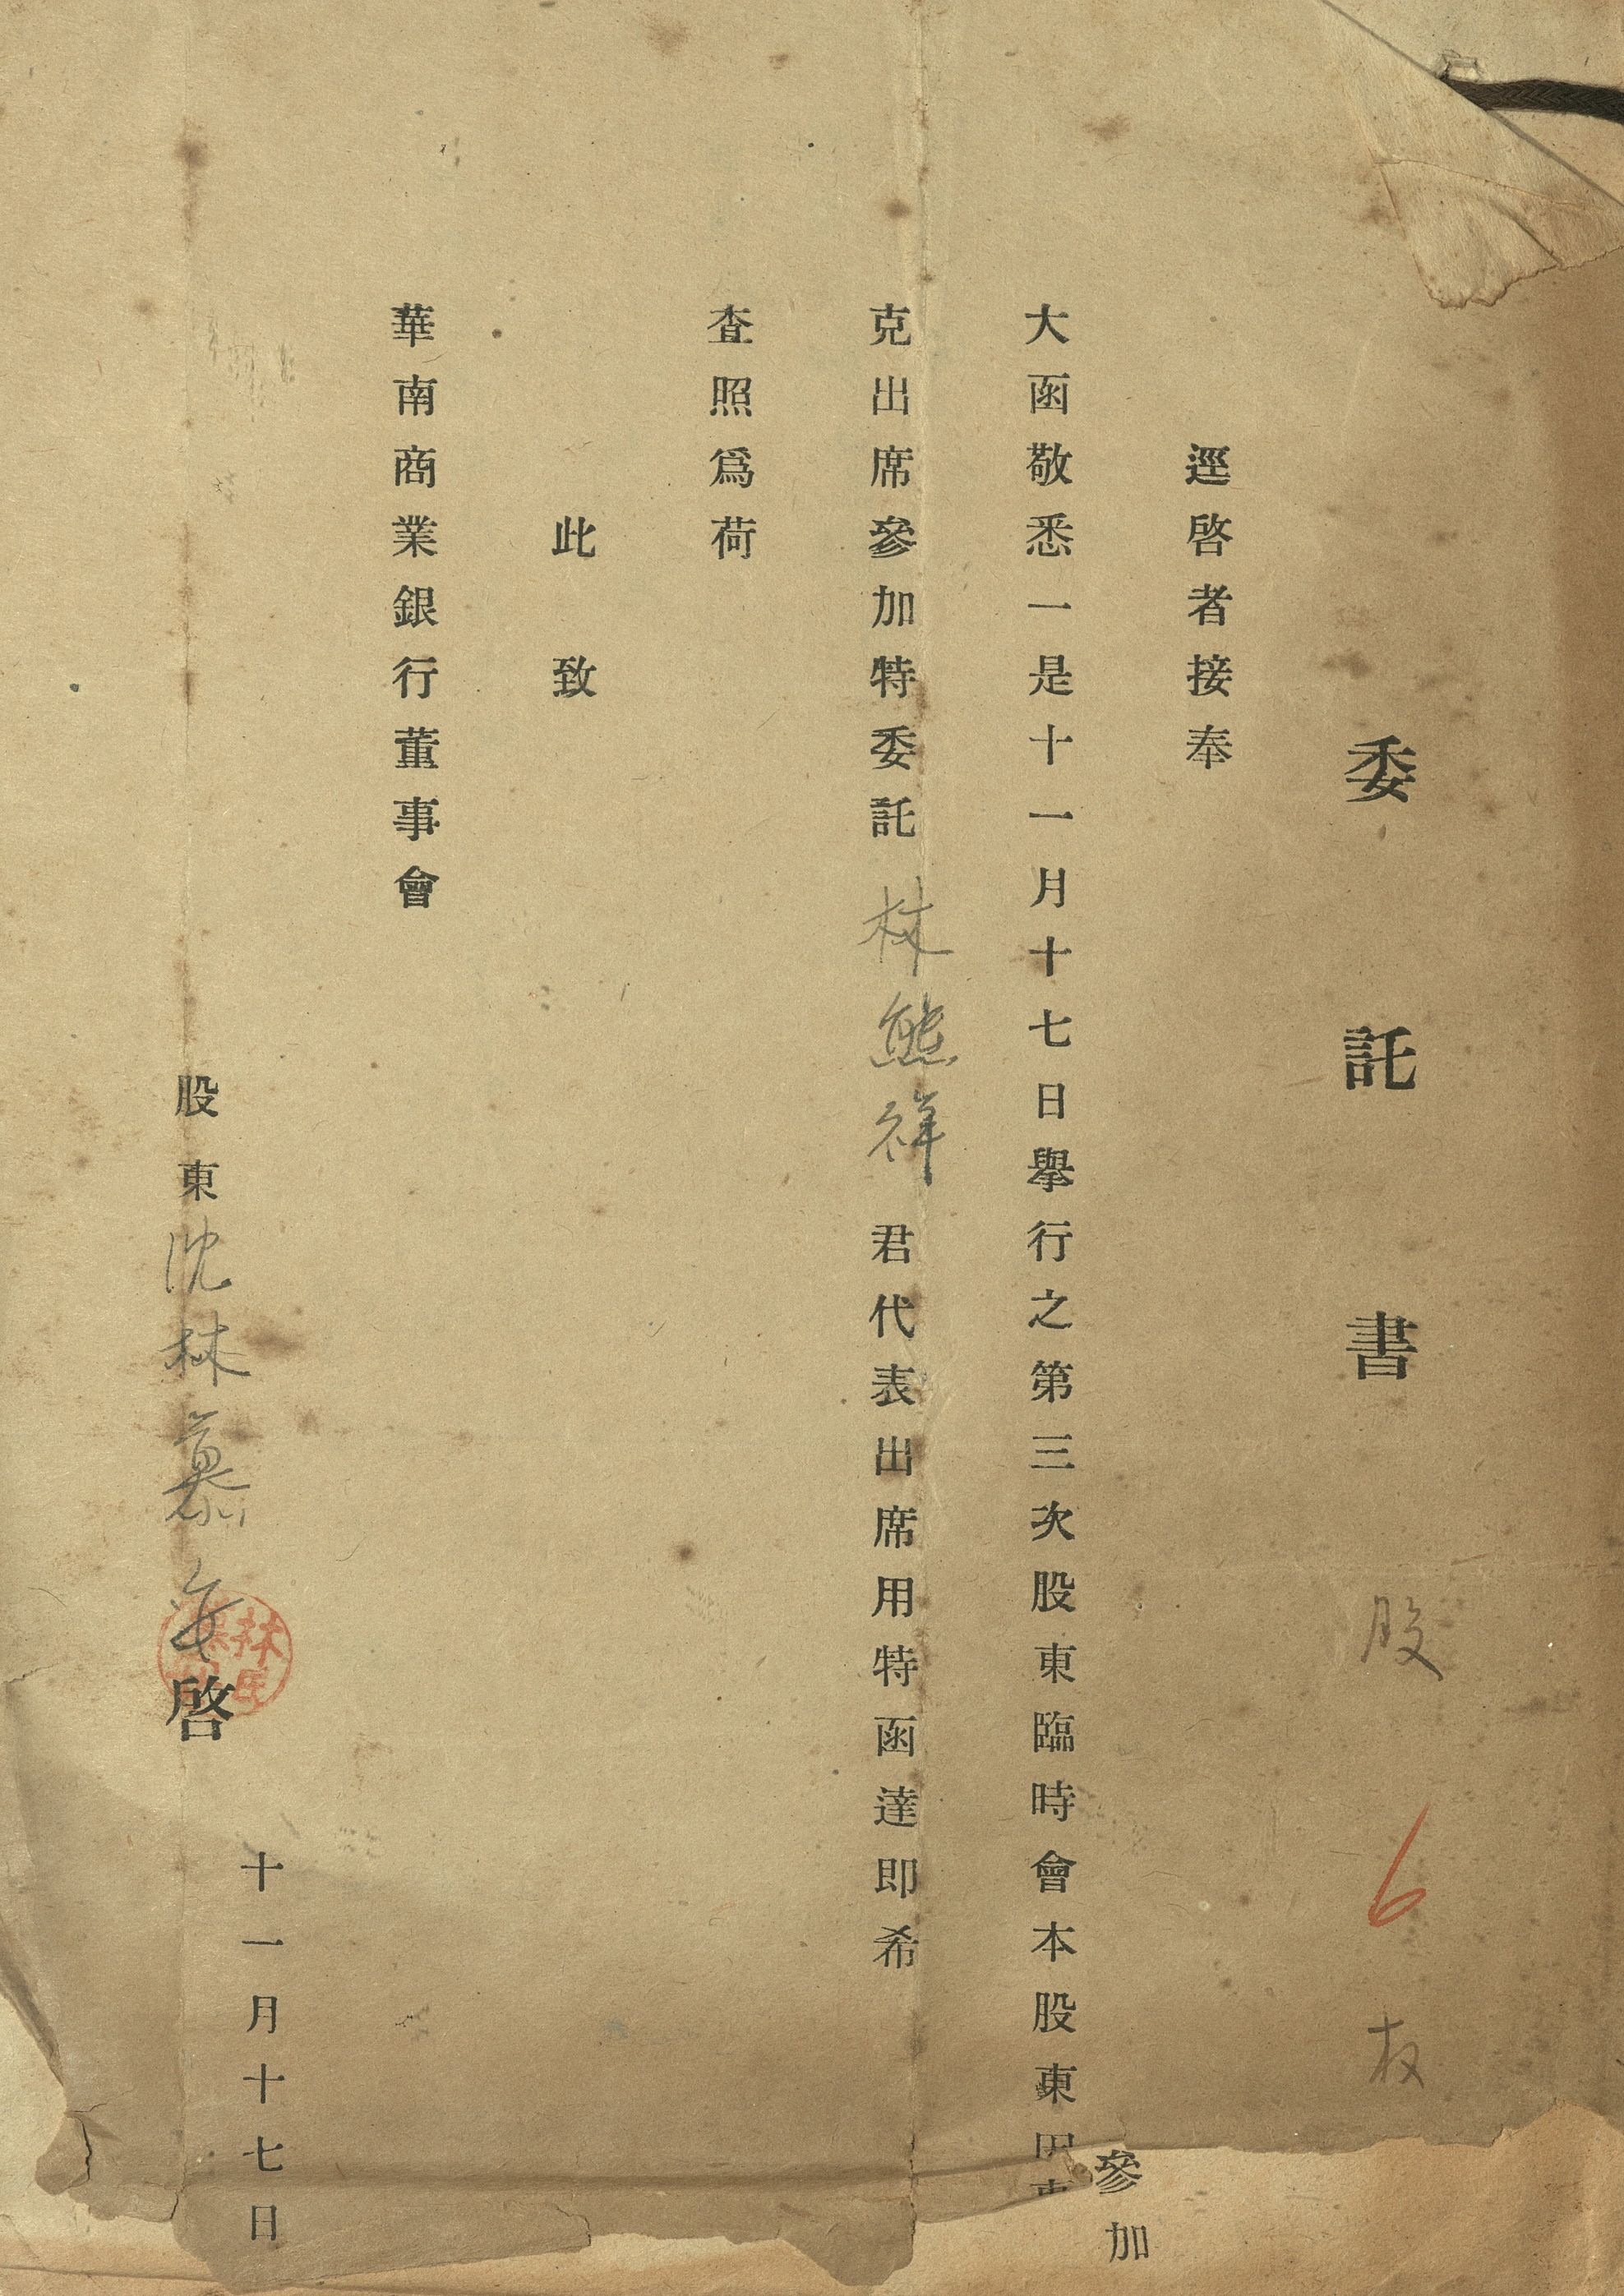 委託書 股 6 权
逕啓者接奉
大函敬悉一是十一月十七日擧行之第三次股東臨時會本股東因事
參加
克出席參加特委託林熊祥君代表出席用特函達即希
查照爲荷
此致
華南商業銀行董事會
股東沈林慕安啓
林氏
十一月十七日